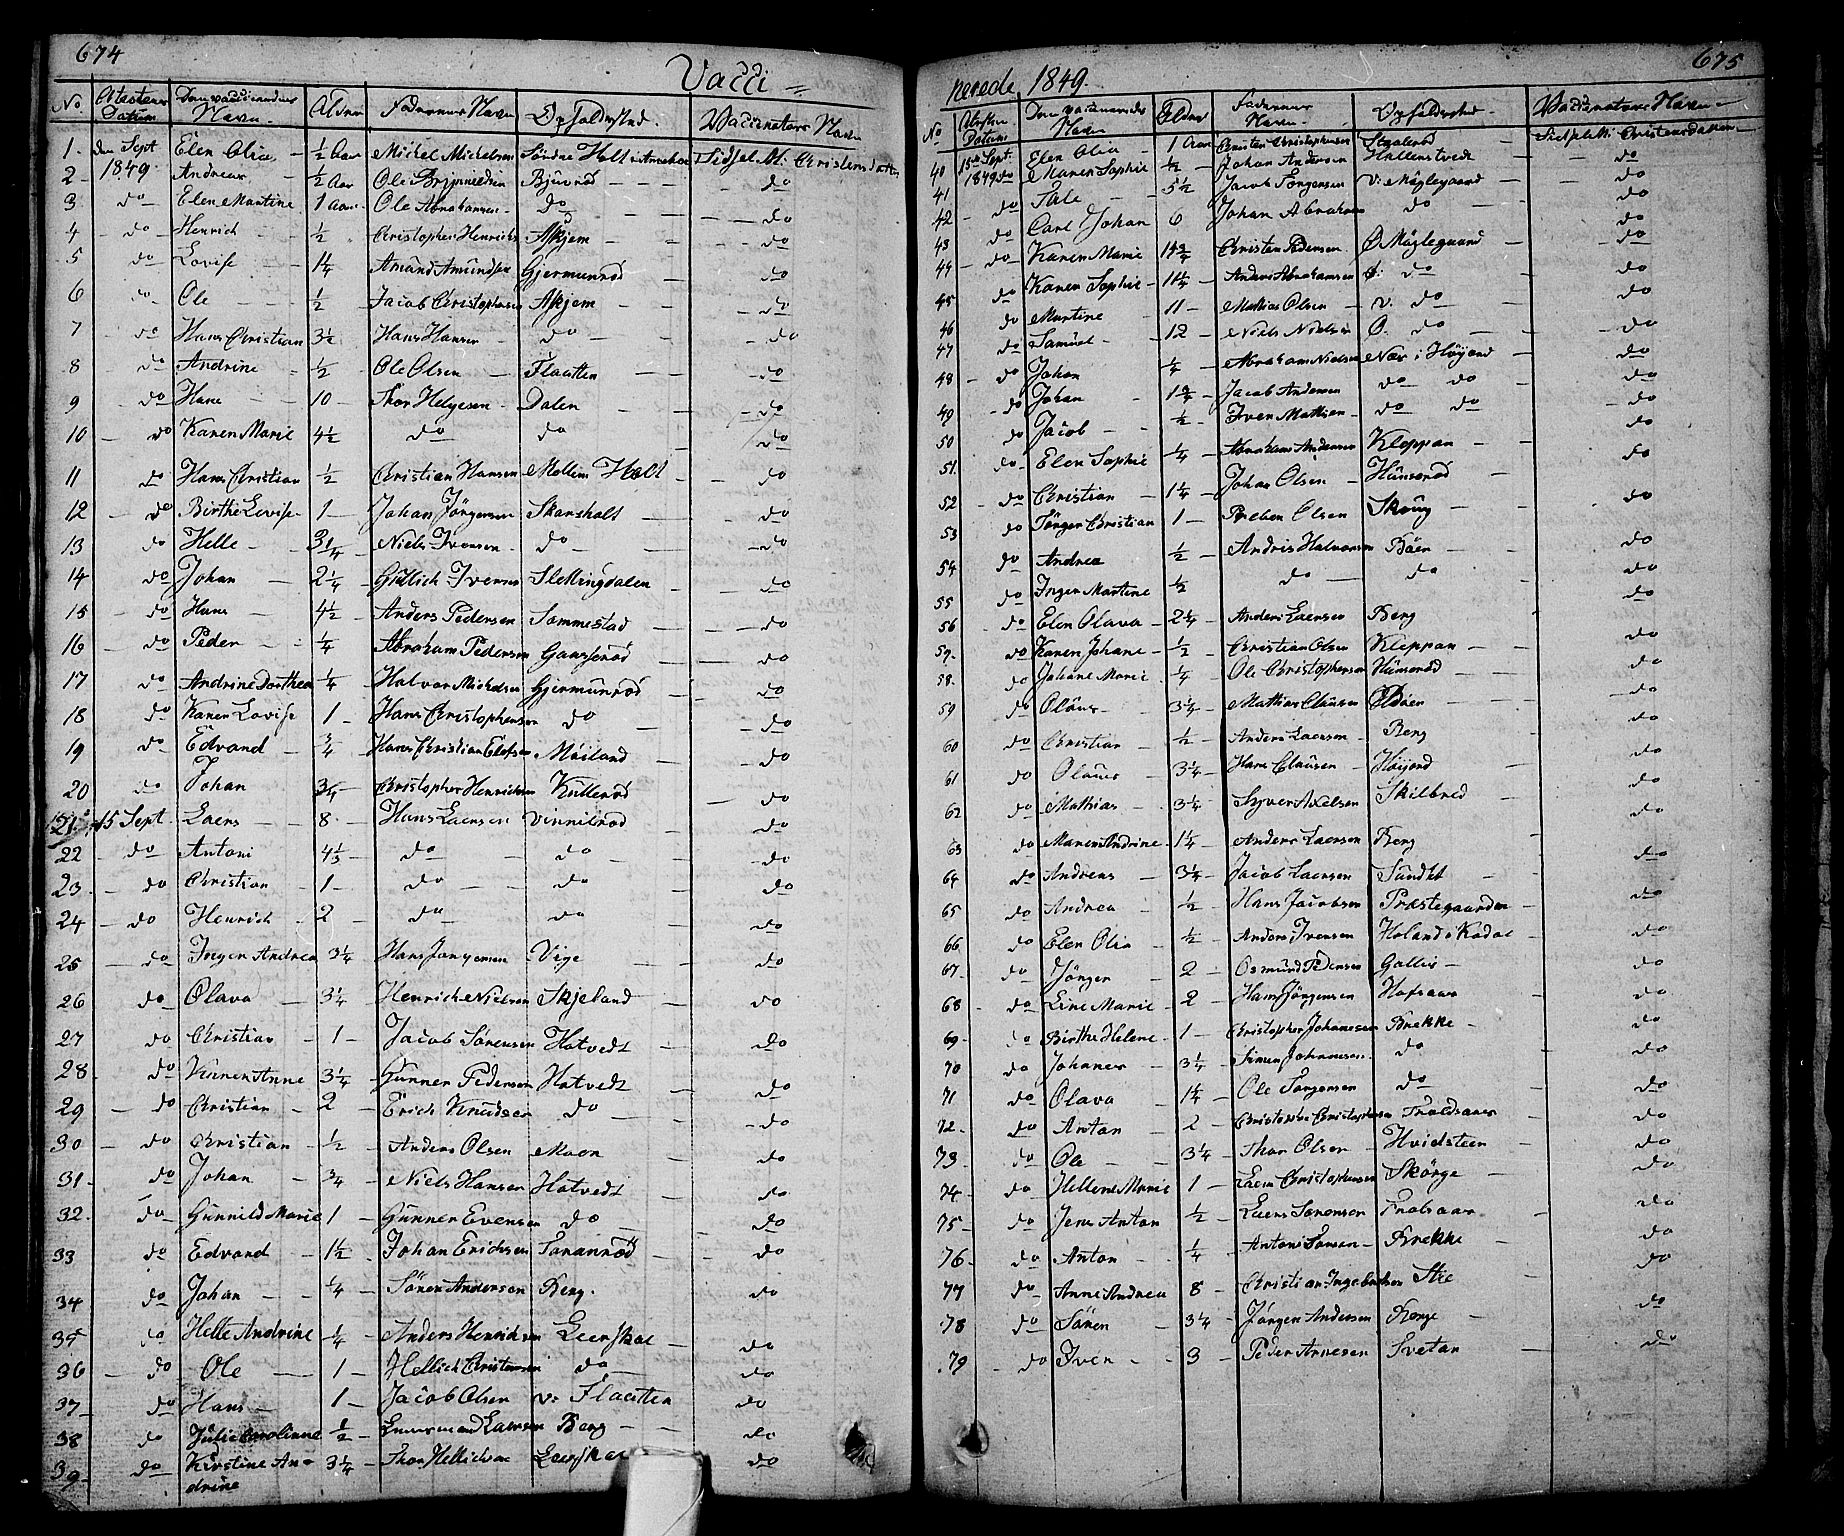 674
Vacci =
No Attestens Datum De vaccineredes Navn Alder Faderens Navn Opholdssted Vaccinators Navn
1 den Sept Elen Olia ½ Aar Michel Michelsen Søndre Holt
2 1849 Andreas ½ Aar Ole Bjurrød do
3 do Elen Martine 1 Aar Ole Abrahamsen do do
4 do Henrich ½ Christopher Henrichs Askjem do
5 do Lovise 1¼ Amund Amundsen Gjermunrød do
6 do Ole ½ Jacob Christophersen Askjem do
7 do Hans Christian 3½ Hans Hansen do do
8 do Andrine ½ Ole Olsen Flaatten do
9 do Hans 10 Thor Helgesen Dalen do
10 do Karen Marie 4½ do do do
11 do Hans Christian ½ Christian Hansen Mellem Holt do
12 do Birthe Lovise 1 Johan Jörgensen Skarsholt do
13 do Helle 3¼ Niels Iversen do do
14 do Johan 2¼ Gullich Ivers Slettingdalen do
15 do Hans 4½ Anders Pedersen Sommestad do
16 do Peder ¼ Abraham Pedersen Gansserød do
17 do Andrine Dorthea ¼ Halvor Michelsen Gjermunrød do
18 do Karen Lovise 1 Hans Christophersen do do
19 do Edvard ¾ Hans Christian Elofsen Möiland do
20 do Johan ¾ Christopher Henrichsen Kullerød do
21 15 Sept. Laers 8 Hans Laersen Vinnilrød do
22 do Antoni 4⅓ do do do
23 do Christian 1 do do do
24 do Henrich 2 do do do
25 do Inger Andrea 3¼ Hans Vige do
26 do Olava 3¼ Henrich Nielsen Skjeland do
27 do Christian 1 Jacob Sörensen Hotvedt do
28 do Karen Anne 3¼ Gunner Pedersen Hotvedt do
29 do Christian 2 Erich Knudsen do do
30 do Christian ½ Anders Olsen Moon do
31 do Johan ¾ Niels Hansen Hotvedt do
32 do Gunnild Marie 1 Gunner Evensen do do
33 do Edvard 1½ Johan Erichsen Soranrød do
34 do Johan ¼ Sören Andersen Berg do
35 do Helle Andrine ¼ Anders Henrichsen Leerskal do
36 do Ole 1 Hellich Christensen do do
37 do Hans 1 Jacob Olsen v: Flaatten do
38 do Julie Carolinne ½ Laersen Berg do
39 do Kirstine Andrine 3¼ Thor Hellichsen Leerskal do
675
nerede 1849.
No Attestens Datum De vaccineredes Navn Alder Faderens Navn Opholdssted Vaccinators Navn
40 15de Sept: Elen Olia 1 Aar Christen Christophersen
1849 do Maren Sophie ½ Johan Andersen Hallenstvedt do
41 do Tale 5½ Jacob Torgersen v: Möglegaard do
42 do Carl Johan 6 Johan Abraham do do
43 do Karen Marie Christen Pedersen Ø Möglegaard do
44 do Karen Sophie 1¼ Anders Abrahamsen Ø: do do
45 do Martine 11 Mathias Olsen v. do do
46 do Samuel 12 Niels Nielsen Ø. do do
47 do Johan ¼ Abraham Nielsen Nær i Höyord do
48 do Johan Jacob Andersen do do do
49 do Jacob ½ Iver Mathisen do do do
50 do Elen Sophie ¼ Abraham Andersen Kleppan do
51 do Christian 1¼ Johan Olsen Hunsrød do
52 do Jörgen Christian 1 Preben Olsen Skoug do
53 do Andrea ½ Andris Halvorsen Böen do
54 do Inger Martine ½ do do do
55 do Elen Olava 2¼ Anders Laersen Berg do
56 do Karen Johane ½ Christian Olsen Kleppan do
59 do Juliane Marie ¼ Ole Christophersen Hunsrød do
58 do Olaus 3¼ Mathias Clausen Böen do
59 do Christian ½ Anders Laersen Berg do
60 do Olaus 3¼ Hans Clausen Höijord do
61 do Mathias 3¼ Syver Axelsen Skilbred do
62 do Maren Andrine 1¼ Anders Laersen Berg do
63 do Andreas 3¼ Jacob Laersen Sundet do
64 do Andrea ½ Hans Jacobsen Præstegaarden do
65 do Elen Olia ½ Anders Iversen Holand i Kodal do
66 do Jörgen 2 Osmund Pedersen Gallis do
67 do Line Marie 2 Hans Jörgensen Hafsaas do
68 do Birthe Helene 1 Christopher Johanesen Brekke do
69 do Johanes 3¼ Simen Johannesen do do
70 do Olava 1¼ Ole Torgersen do do
71 do Anton 2 Christopher Christophersen Troldsaas do
72 do Ole 3¼ Thor Olsen Hvidsteen do
73 do Hellene Marie 1 Laers Christophersen Skörge do
74 do Jens Anton ½ Laers Sörensen Trolsaas do
75 do Anton ¼ Antoni Brekke do
76 do Anne Andrea 8 Christian Ingebretsen Stie do
77 do Sören 3¼ Jörgen Andersen do
78 do Iver 3 Peder Arnesen Svetan do
79 do